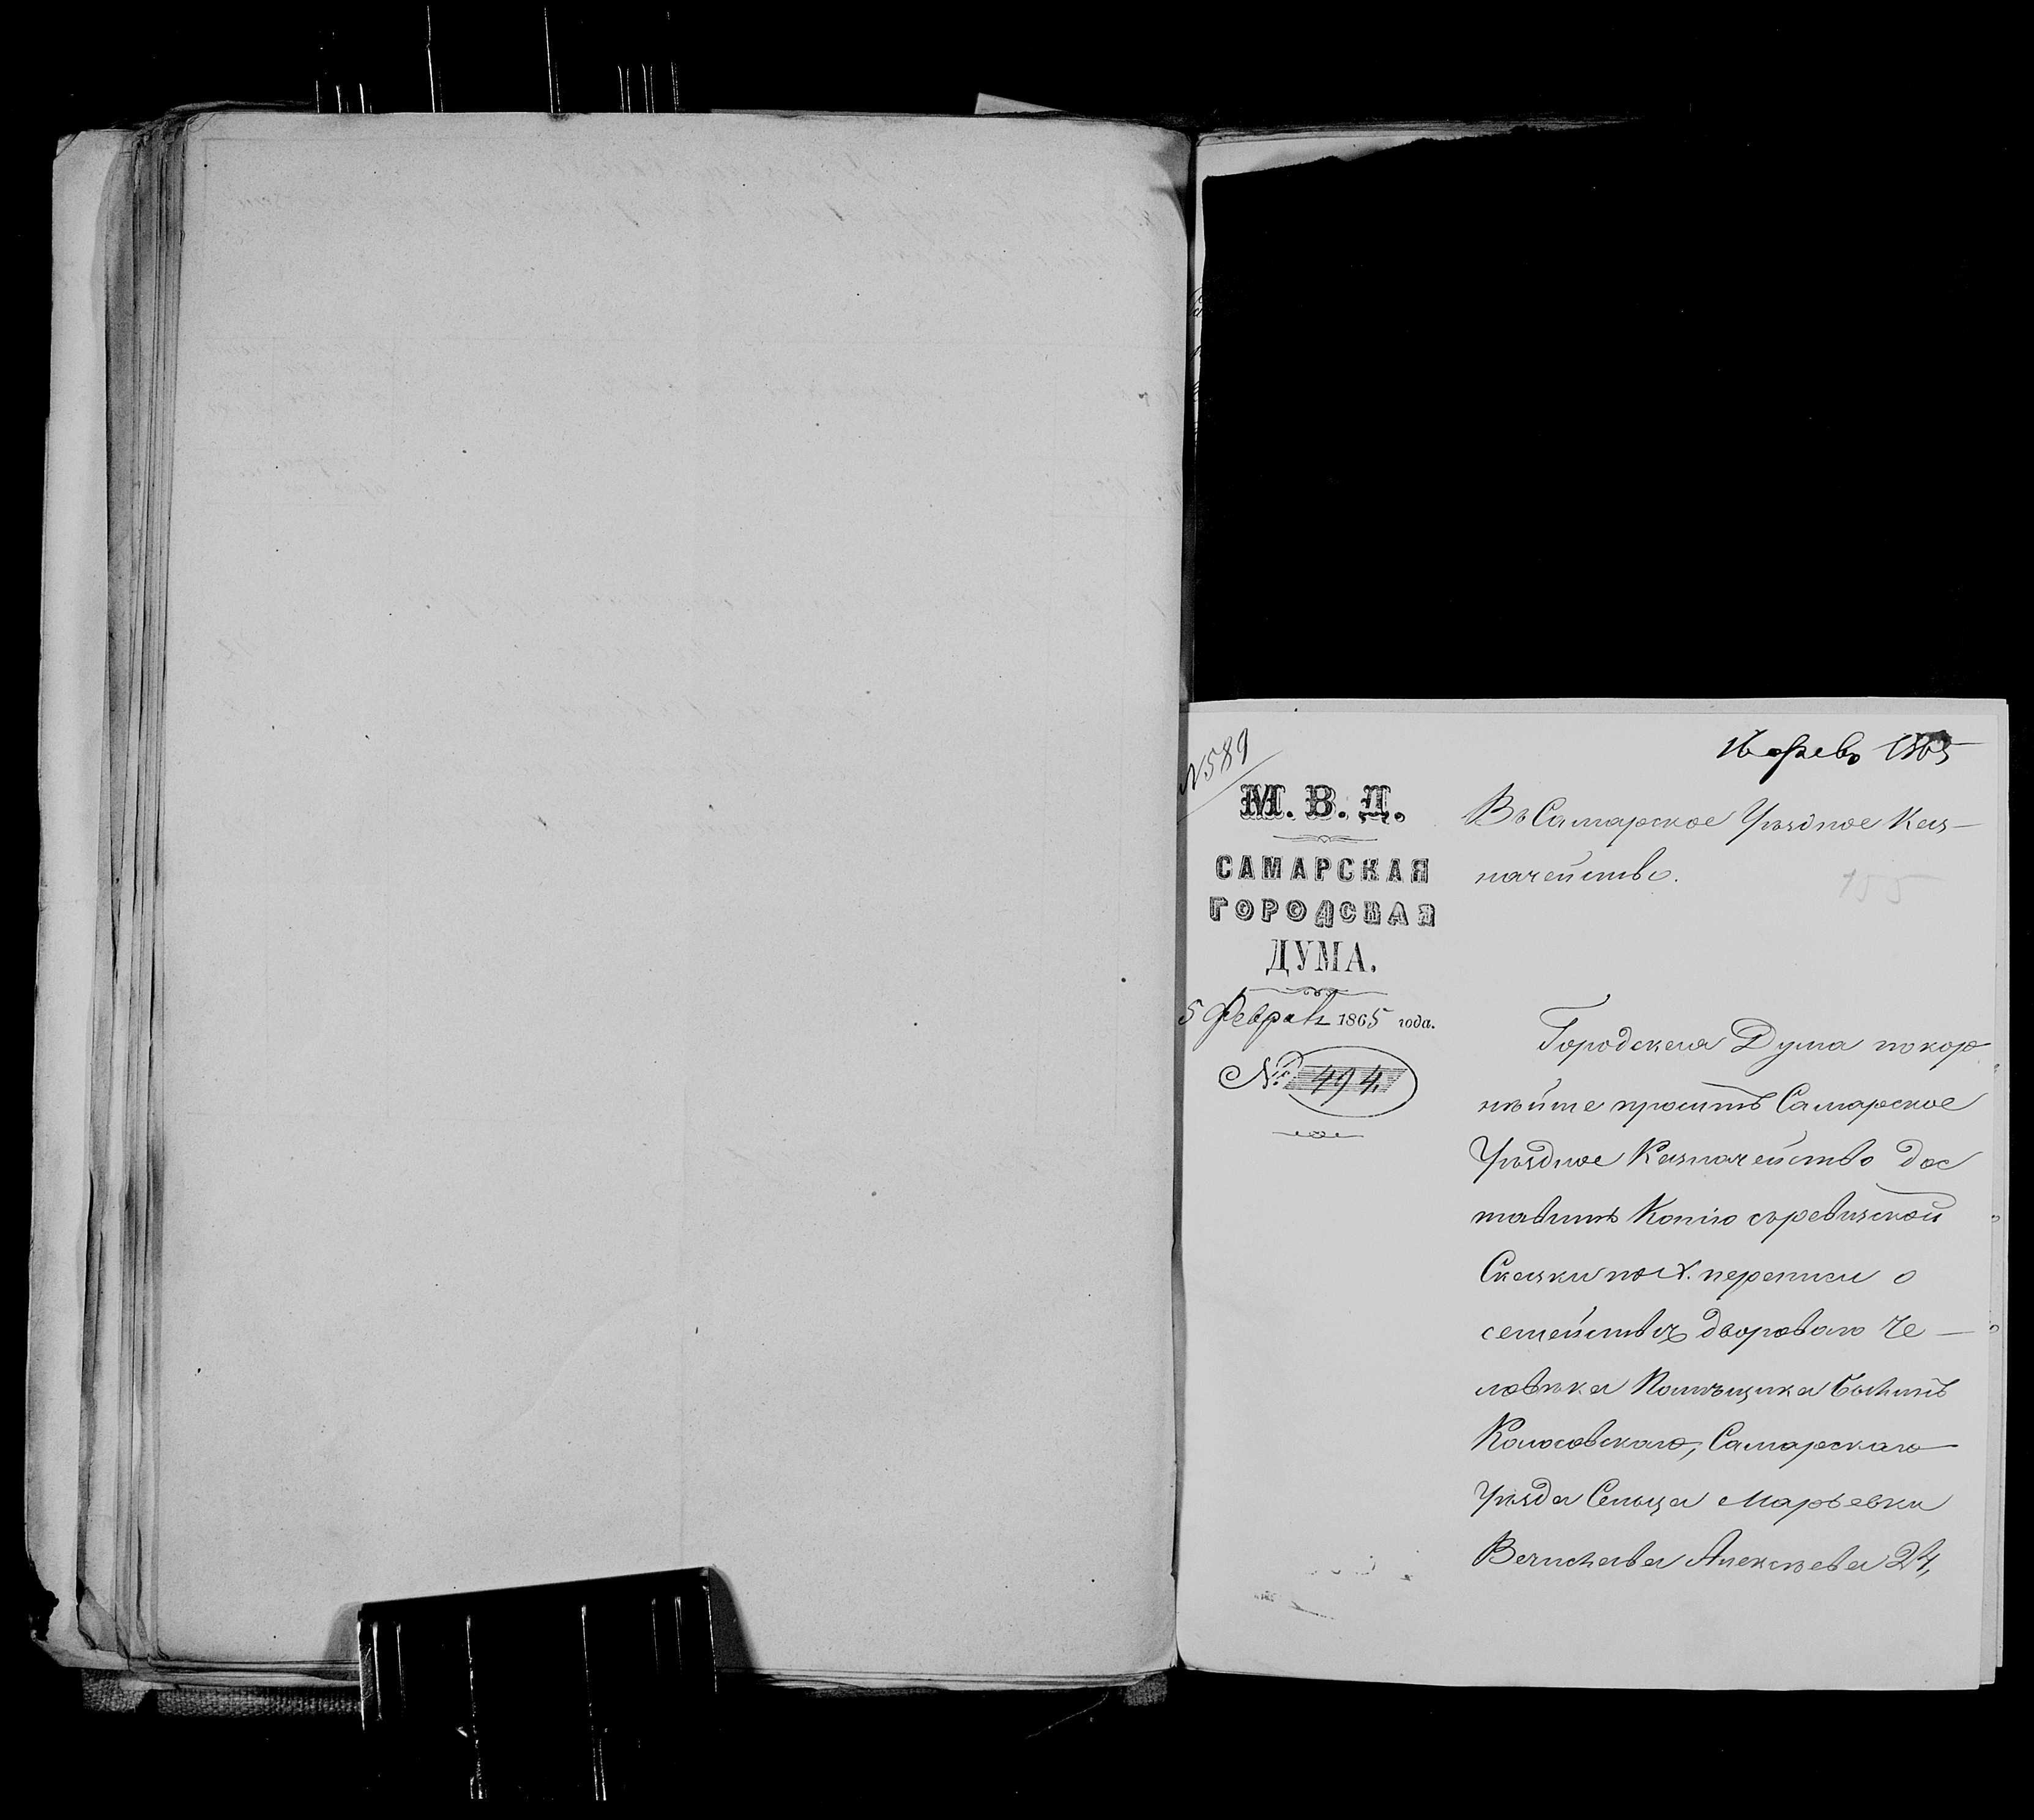 № 589
16 февр 1865
М. В. Д.
САМАРСКАЯ
ГОРОДСКАЯ
ДУМА.
5 Февраля 1865 года.
№ 494.
Въ Самарское Уѣздное Каз-
начейство.
155
Городская Дума покор
нѣйше проситъ Самарское
Уѣздное Казначейство дос
тавить Копію съ ревизской
Сказки по X. переписи о
семействѣ двороваго че-
ловѣка Помѣщика
Колосовскаго, Самарскаго
Уѣзда Сельца Марьевки
Вячеслава Алексѣева 24,